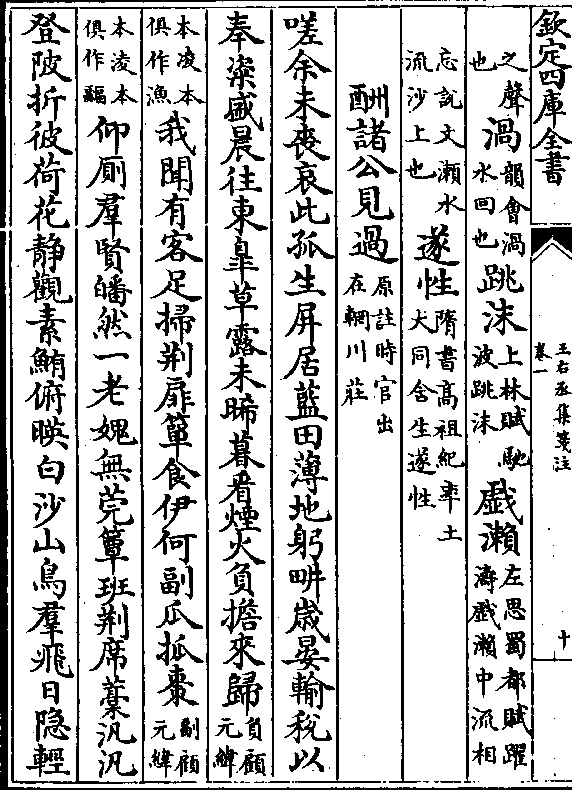 欽定四庫全書
王右丞集箋注
卷一
十
之聲也渦韻會渦水回也跳沫上林賦馳波跳沫戲瀨左思蜀都賦躍濤戲瀨中流相
忘説文瀨水流沙上也遂性隋書高祖紀率土大同含生遂性
酬諸公見過原註時官出在輞川莊
嗟余未喪哀此孤生屏居藍田薄地躬畊歲晏輸稅以
奉粢盛晨往東臯草露未晞暮看煙火負擔來歸負顧元緯
本凌本俱作漁我聞有客足掃荆扉簞食伊何副瓜抓棗副顧元緯
本凌本俱作仰厠羣賢皤然一老媿無莞簟班荆席藁汎汎
登陂折彼荷花静觀素鮪俯暎白沙山鳥羣飛日隐輕